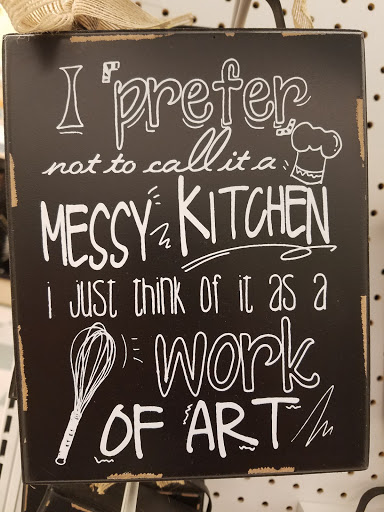 I prefer
not to call it a
MESSY KITCHEN
i just think of it as a
work
OF ART